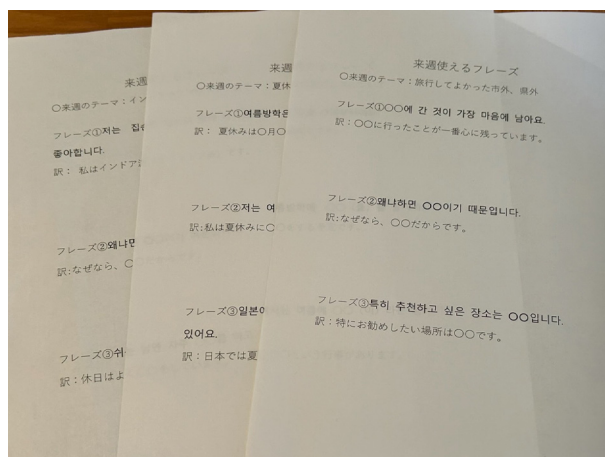 来週
○来週のテーマ：イン
フレーズ①저는
좋아합니다.
訳： 私はインドア
フレーズ②왜냐면
訳:なぜなら、○
フレーズ③쉬
訳：休日はよ
来週
○来週のテーマ：夏休
フレーズ①여름방학은
訳： 夏休みは○月○
フレーズ②저는 여
訳:私は夏休みに○
フレーズ③일본에
있어요.
訳：日本では夏
来週使えるフレーズ
○来週のテーマ：旅行してよかった市外、県外
フレーズ①○○에 간 것이 가장 마음에 남아요.
訳：○○に行ったことが一番心に残っています。
フレーズ②왜냐하면 ○○이기 때문입니다.
訳:なぜなら、○○だからです。
フレーズ③특히 추천하고 싶은 장소는 ○○입니다.
訳：特にお勧めしたい場所は○○です。